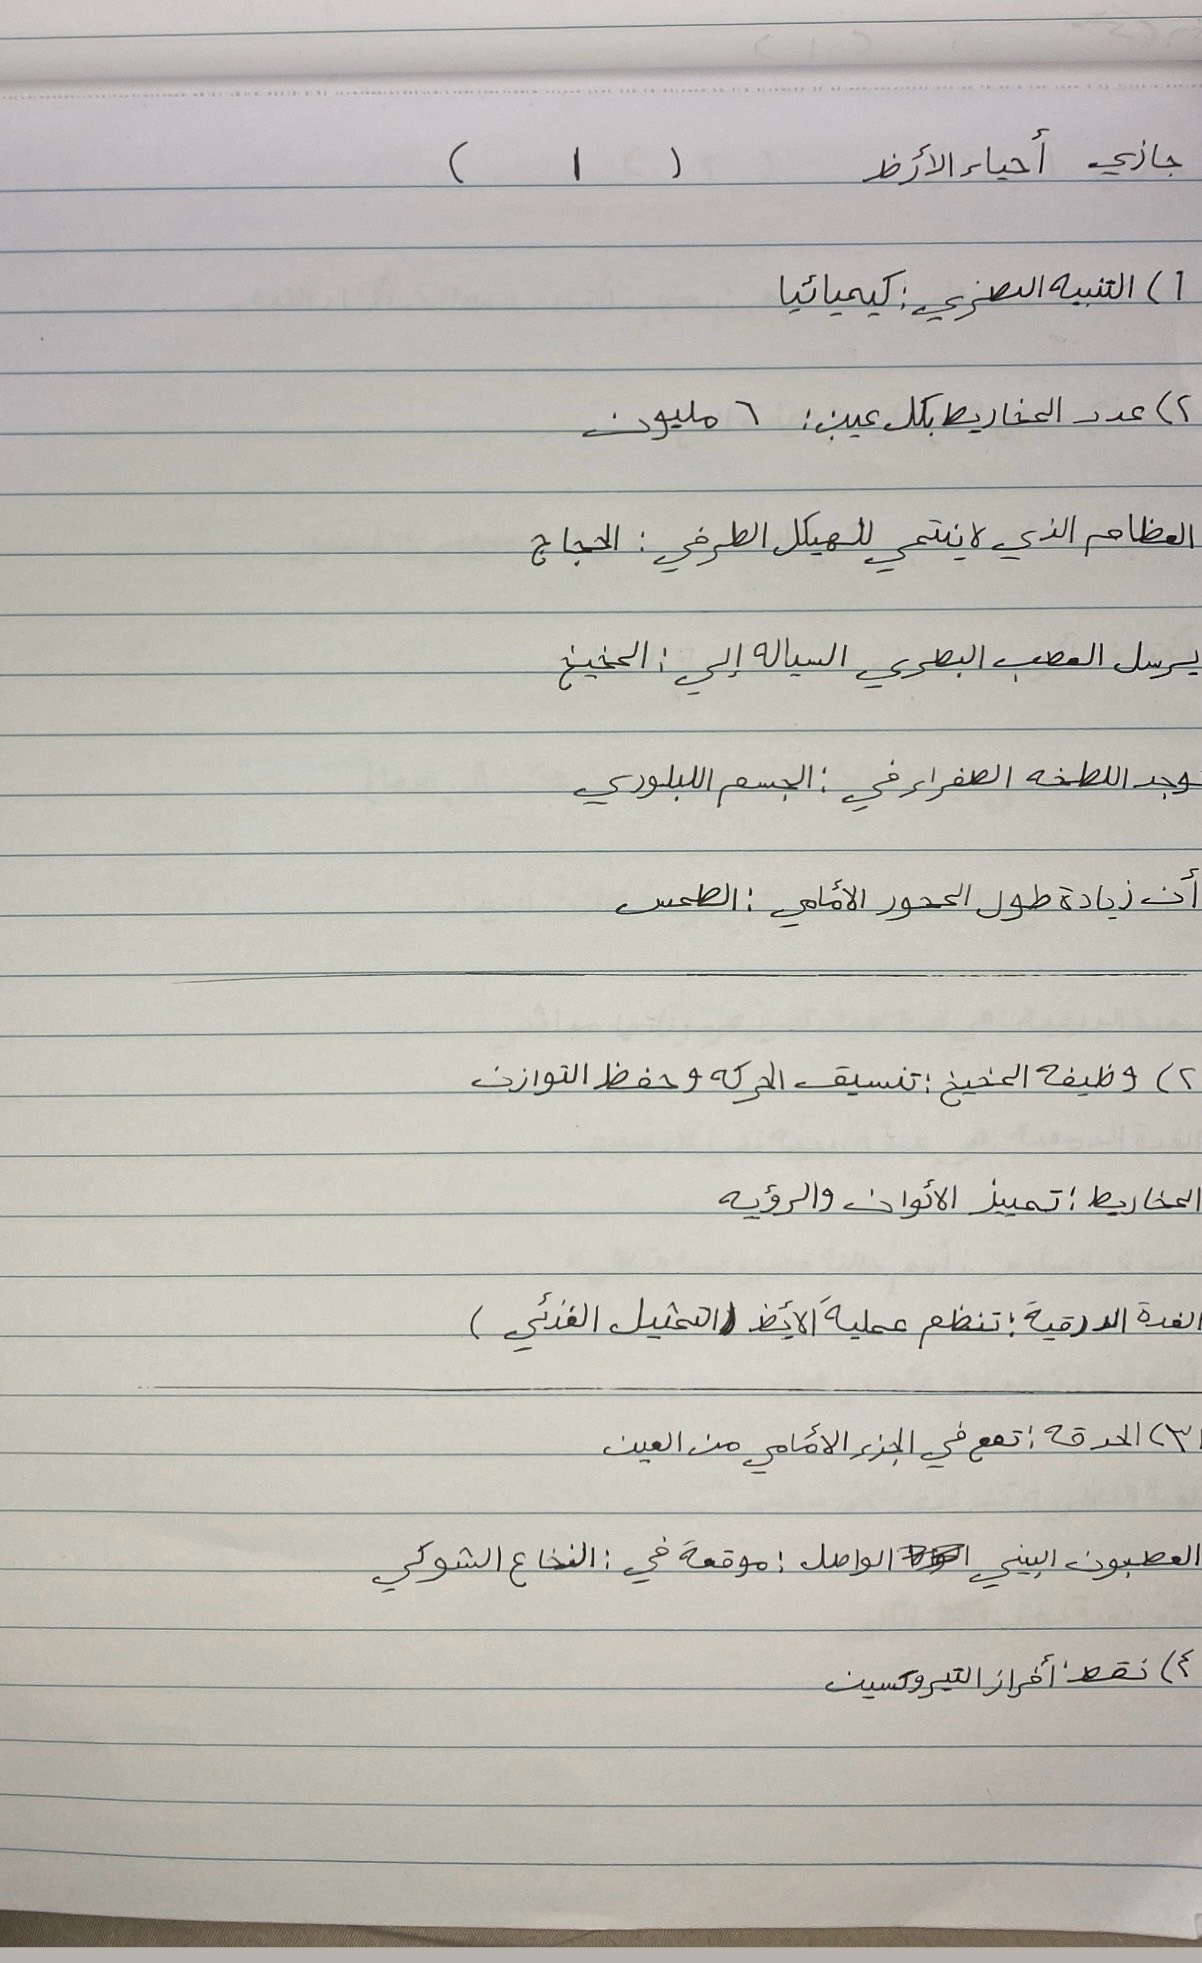 جازي أحياء الأرض ( ١ )
١) التنبيه البصري : كيميائيا
٢) عدد المخاريط بكل عين : ٦ مليون
العظام الذي لا ينتمي للهيكل الطرفي : الحجاج
يرسل العصب البصري السياله إلى : المخيخ
توجد اللطخه الصفراء في : الجسم البلوري
أن زيادة طول المحور الأمامي : الطمس
٢) وظيفة المخيخ : تنسيق الحركه وحفظ التوازن
المخاريط : تمييز الألوان والرؤيه
الغدة الدرقية : تنظم عملية الأيض (التمثيل الغذئي )
٣) الحدقه : تقع في الجزء الأمامي من العين
العصبون البيني الواصل : موقعة في : النخاع الشوكي
٤) نقص أفراز التيروكسين